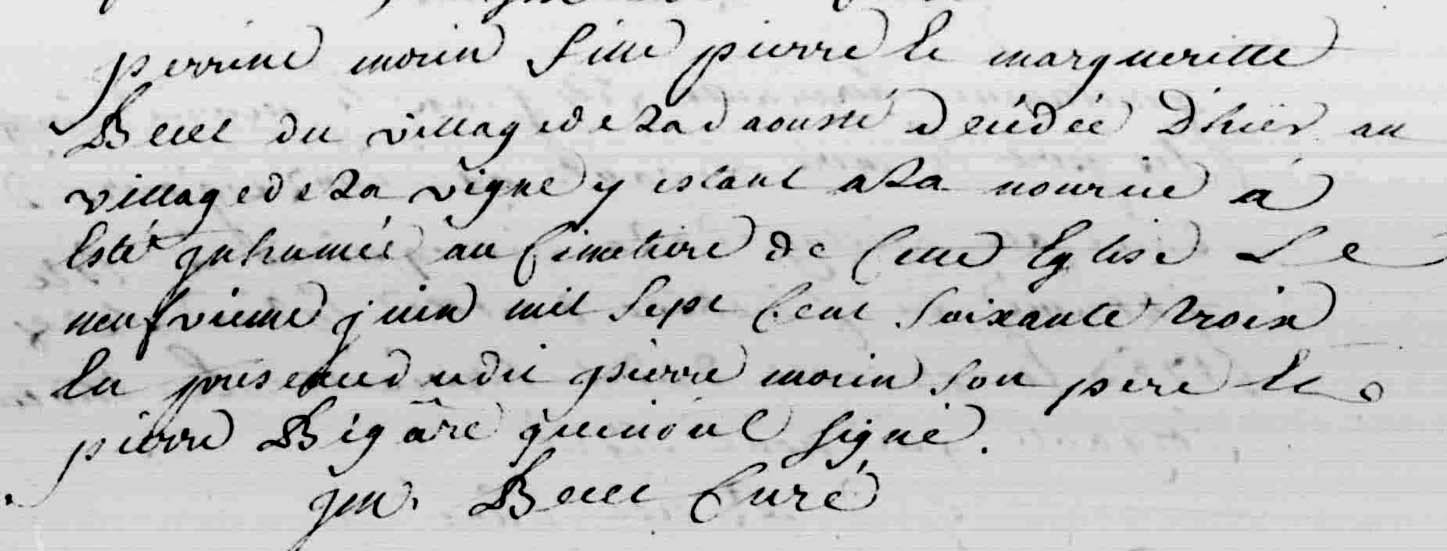 perrine morin fille pierre et margueritte
Becel du village de la daousté décédée D'hiër au
village de la vigne y estant a la nourice á
Esté jnhumée au Cimetiere de Cette Eglise Le
neufvieme juin mil Sept Cent Soixante troix
En presence dudit pierre morin Son pere Et
pierre Bégâre qui n'ont signé.
jm. Becel Curé